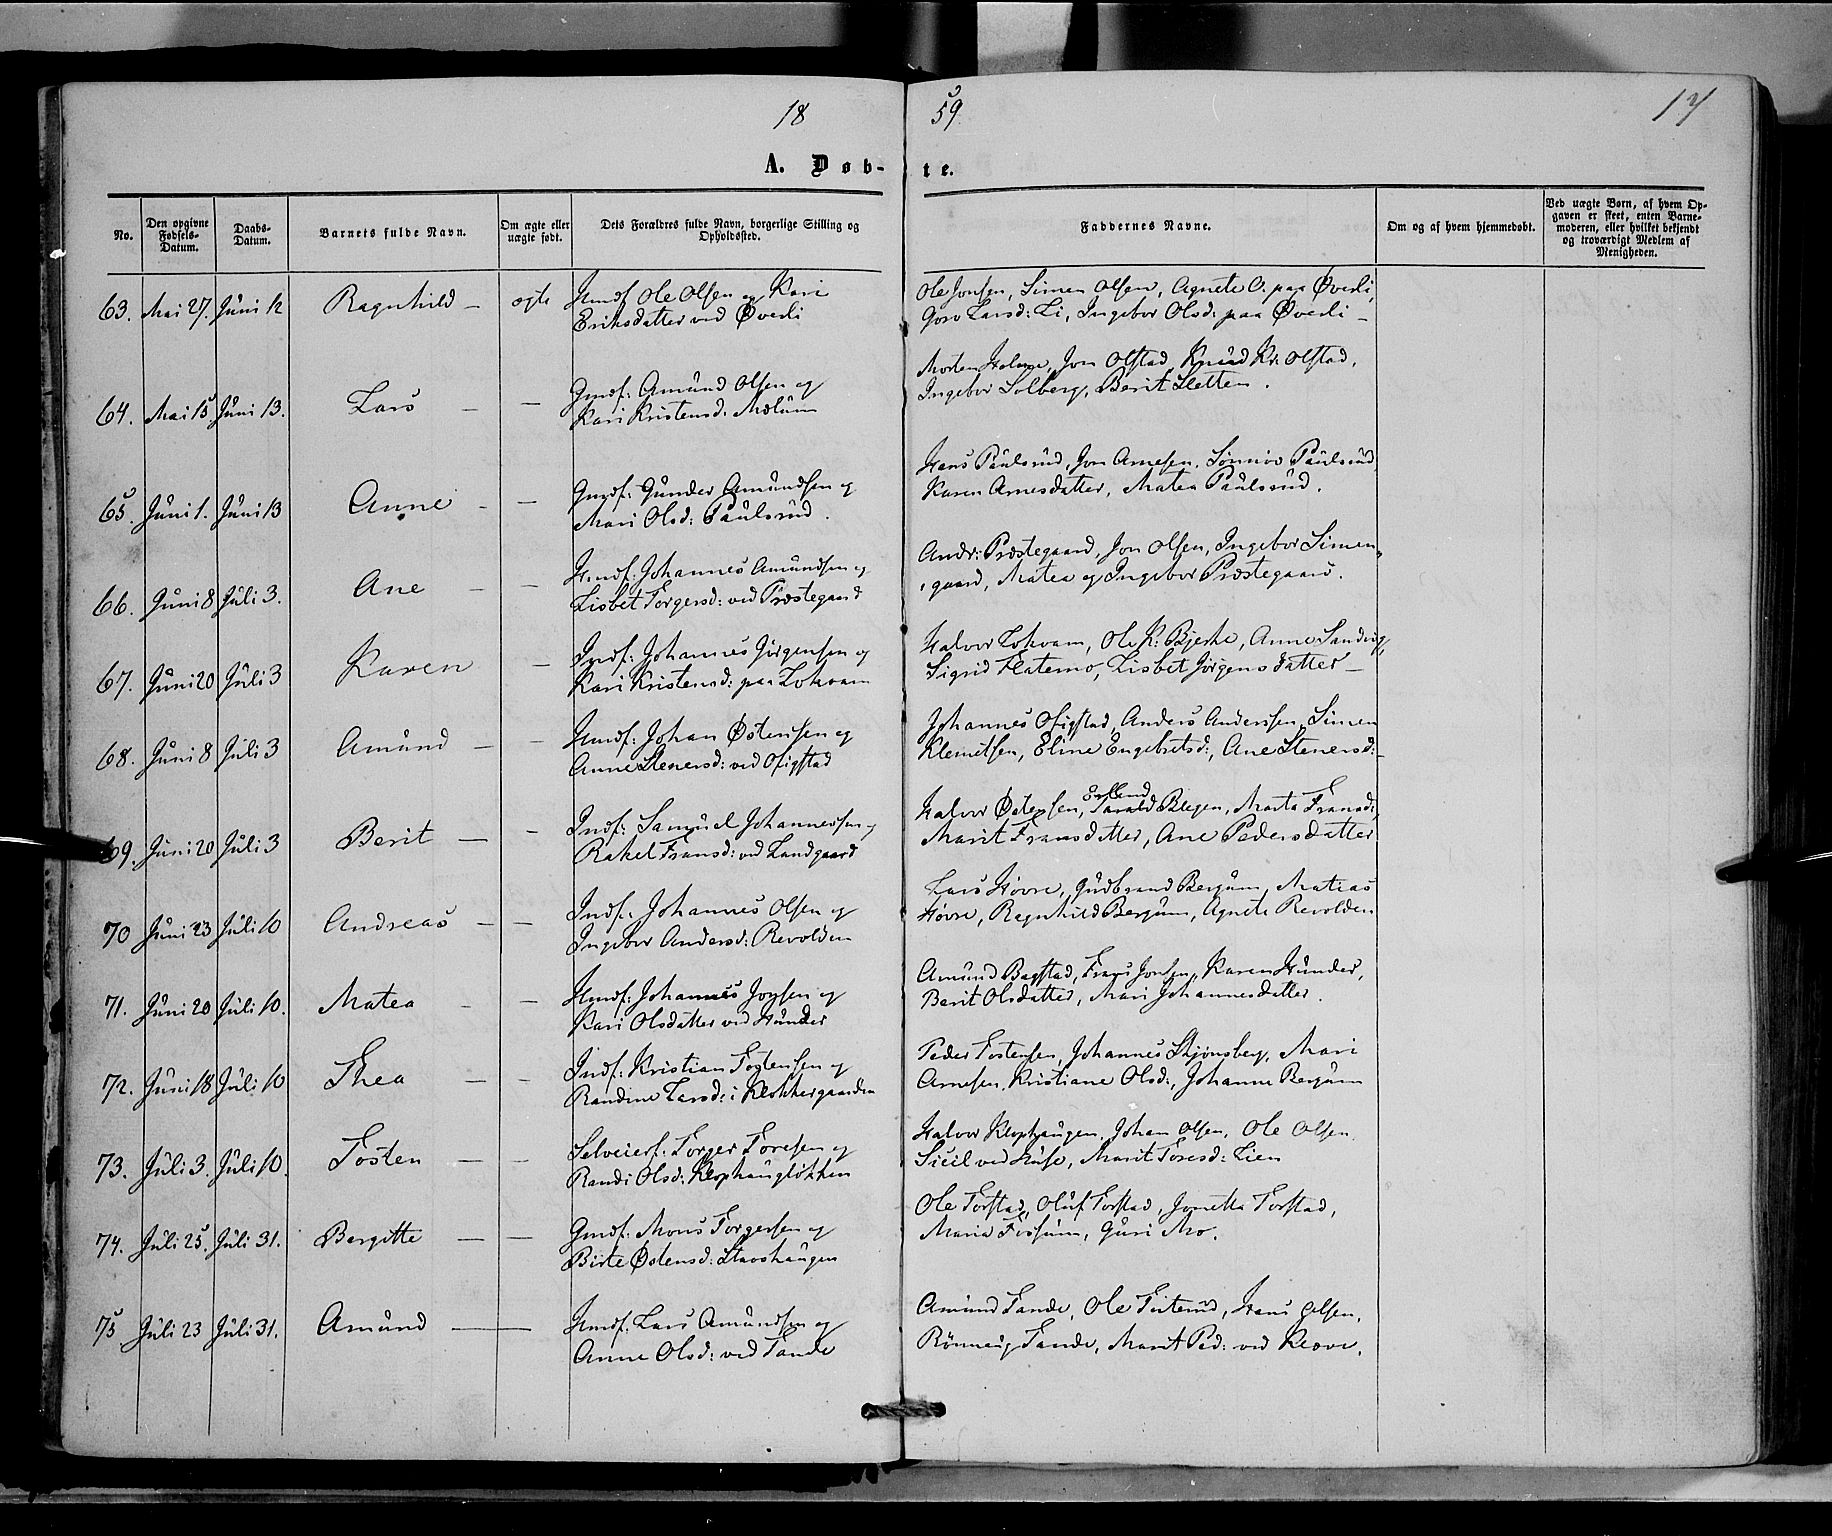 18 59. 17
A. Døb- te.
No. Den opgivne Fødsels-Datum. Daabs-Datum. Barnets fulde Navn. Om ægte eller uægte født. Dets Forældres fulde Navn, borgerlige Stilling og Opholdssted. Faddernes Navne. Om og af hvem hjemmedøbt. Ved uægte Børn, af hvem Opgaven er skeet, enten Barnemoderen, eller hvilket bekjendt og troværdigt Medlem af Menigheden.
63. Mai 27. Juni 12 Ragnhild – ægte Hmdf. Ole Olsen og Kari
Eriksdatter ved Øverli
Ole Jonsen, Simen Olsen, Agnete O. paa Øverli,
Goro Larsd: Li, Ingebor Olsd: paa Øverli –
64. Mai 15. Juni 13. Lars – – Gmdf: Amund Olsen og
Kari Kristensd: Mælum
Morten Holme, Jon Olstad, Knud Kr. Olstad,
Ingebor Solberg, Berit Sletten.
65. Juni 1. Juni 13 Anne – – Gmdf: Gunder Amundsen og
Mari Olsd: Paulsrud.
Hans Paulsrud, Jon Arnesen, Sønnøv Paulsrud,
Karen Arnesdatter, Matea Paulsrud.
66. Juni 8 Juli 3. Ane – – Hmdf: Johannes Amundsen og
Lisbet Torgersd: ved Præstegaard
Andr: Præstegaard, Jon Olsen, Ingebor Simen-
gaard, Matea og Ingebor Præstegaard.
67. Juni 20 Juli 3 Karen – Indf: Johannes Jörgensen og
Kari Kristensd: paa Lokvam
Halvor Lokvam, Ole K. Bjerke, Anne Sandvig,
Sigrid Flatemo, Lisbet Jörgensdatter –
68. Juni 8 Juli 3 Amund – – Hmdf: Johan Østensen og
Anne Stenersd: ved Ofigstad
Johannes Ofigstad, Anders Andersen, Simen
Klemetsen, Eline Engebretsd:, Ane Stenersd: –
69. Juni 20 Juli 3 Berit – – Indf: Samuel Johannesen og
Rakel Fransd: ved Landgaard
Erlend
Halvor Østensen, Tarald Blegen, Marta Fransd:,
Marit Fransdatter, Ane Pedersdatter
70 Juni 23 Juli 10 Andreas – – Indf: Johannes Olsen og
Ingebor Andersd: Revolden
Lars Høvre, Gudbrand Bergum, Matias
Høvre, Regnhild Bergum, Agnete Revolden
71. Juni 20 Juli 10. Matea – – Hmdf: Johannes Jonsen og
Kari Olsdatter ved Hunder
Amund Bagstad, Frans Jonsen, Karen Hunder,
Berit Olsdatter, Mari Johannesdatter.
72. Juni 18 Juli 10 Thea – – Indf: Kristian Tostensen og
Randine Larsd: i Klokkergaarden
Peder Tostensen, Johannes Skjønsberg, Mari
Arnesen, Kristiane Olsd:, Johanne Bergum
73. Juli 3. Juli 10. Tosten – – Selveierf: Torger Toresen og
Randi Olsd: Klophaugløkken
Halvor Klophaugen, Johan Olsen, Ole Olsen,
Sicil ved Huse, Marit Toresd: Lien
74. Juli 25. Juli 31. Bergitte – – Gmdf: Mons Torgersen og
Birte Østensd: Stavshaugen
Ole Torstad, Oluf Torstad, Jonetta Torstad,
Maria Fossum, Guri Mo.
75 Juli 23 Juli 31. Amund – – Hmdf: Lars Amundsen og
Anne Olsd: ved Tande
Amund Tande, Ole Teterud, Hans Olsen,
Rönnaug Tande, Marit Ped: ved Klove.